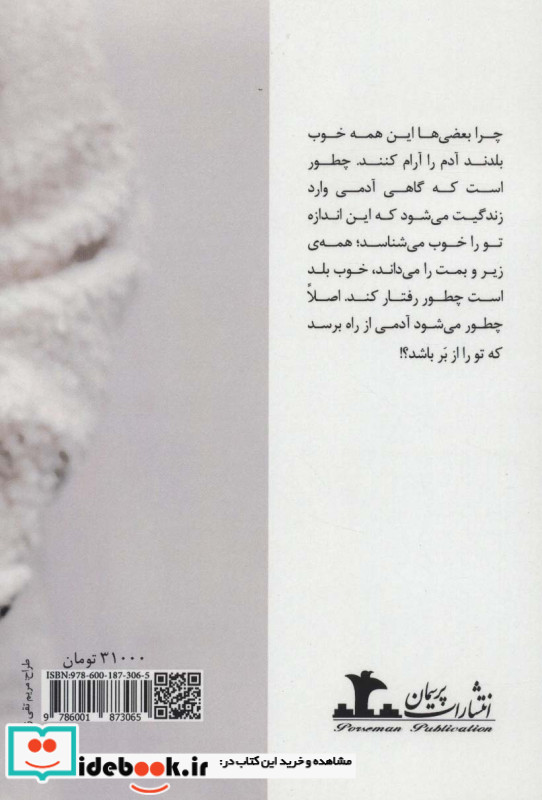 چرا بعضی‌ها این همه خوب
بلدند آدم را آرام کنند. چطور
است که گاهی آدمی وارد
زندگیت می‌شود که این اندازه
تو را خوب می‌شناسد؛ همه‌ی
زیر و بمت را می‌داند، خوب بلد
است چطور رفتار کند. اصلاً
چطور می‌شود آدمی از راه برسد
که تو را از بَر باشد؟!
۳۱۰۰۰ تومان
ISBN:978-600-187-306-5
9 786001 873065
طراح: مریم تقی
انتشارات پریمان
Porseman Publication
idebook.ir
مشاهده و خرید این کتاب در: